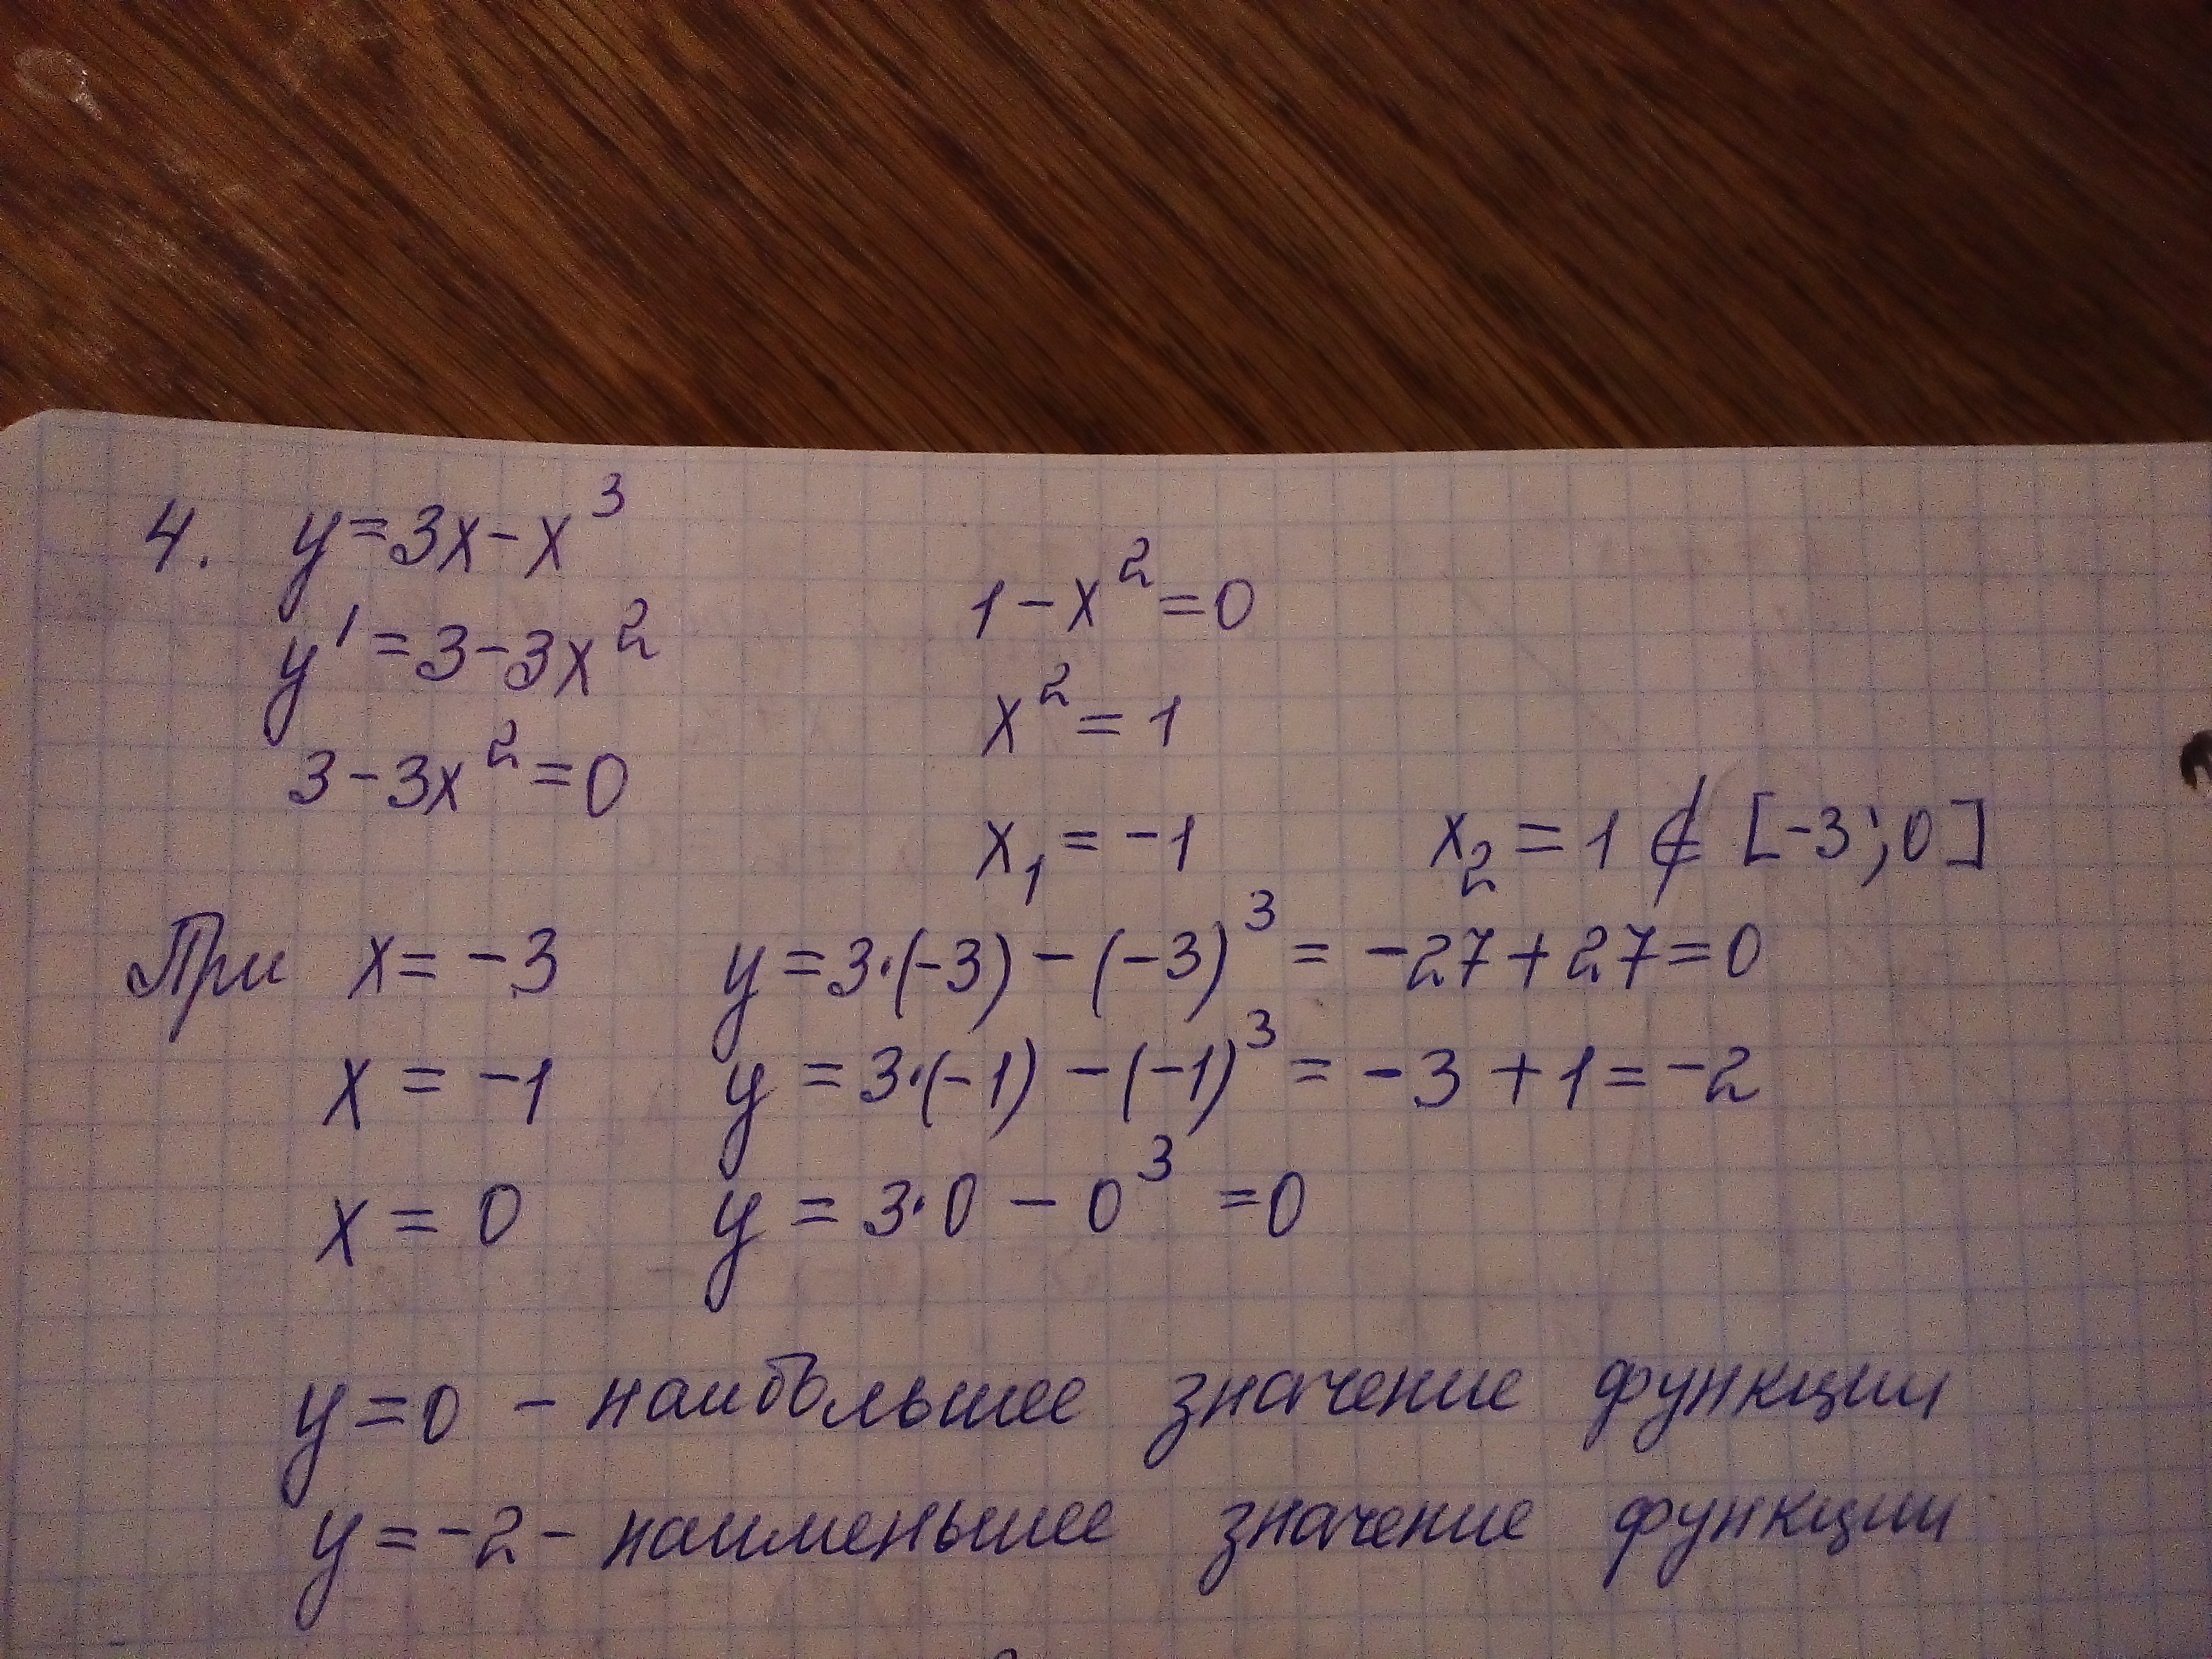 4. y = 3x - x³
y' = 3 - 3x²
3 - 3x² = 0
1 - x² = 0
x² = 1
x₁ = -1 x₂ = 1 ∉ [-3; 0]
При x = -3 y = 3·(-3) - (-3)³ = -27 + 27 = 0
x = -1 y = 3·(-1) - (-1)³ = -3 + 1 = -2
x = 0 y = 3·0 - 0³ = 0
y = 0 - наибольшее значение функции
y = -2 - наименьшее значение функции